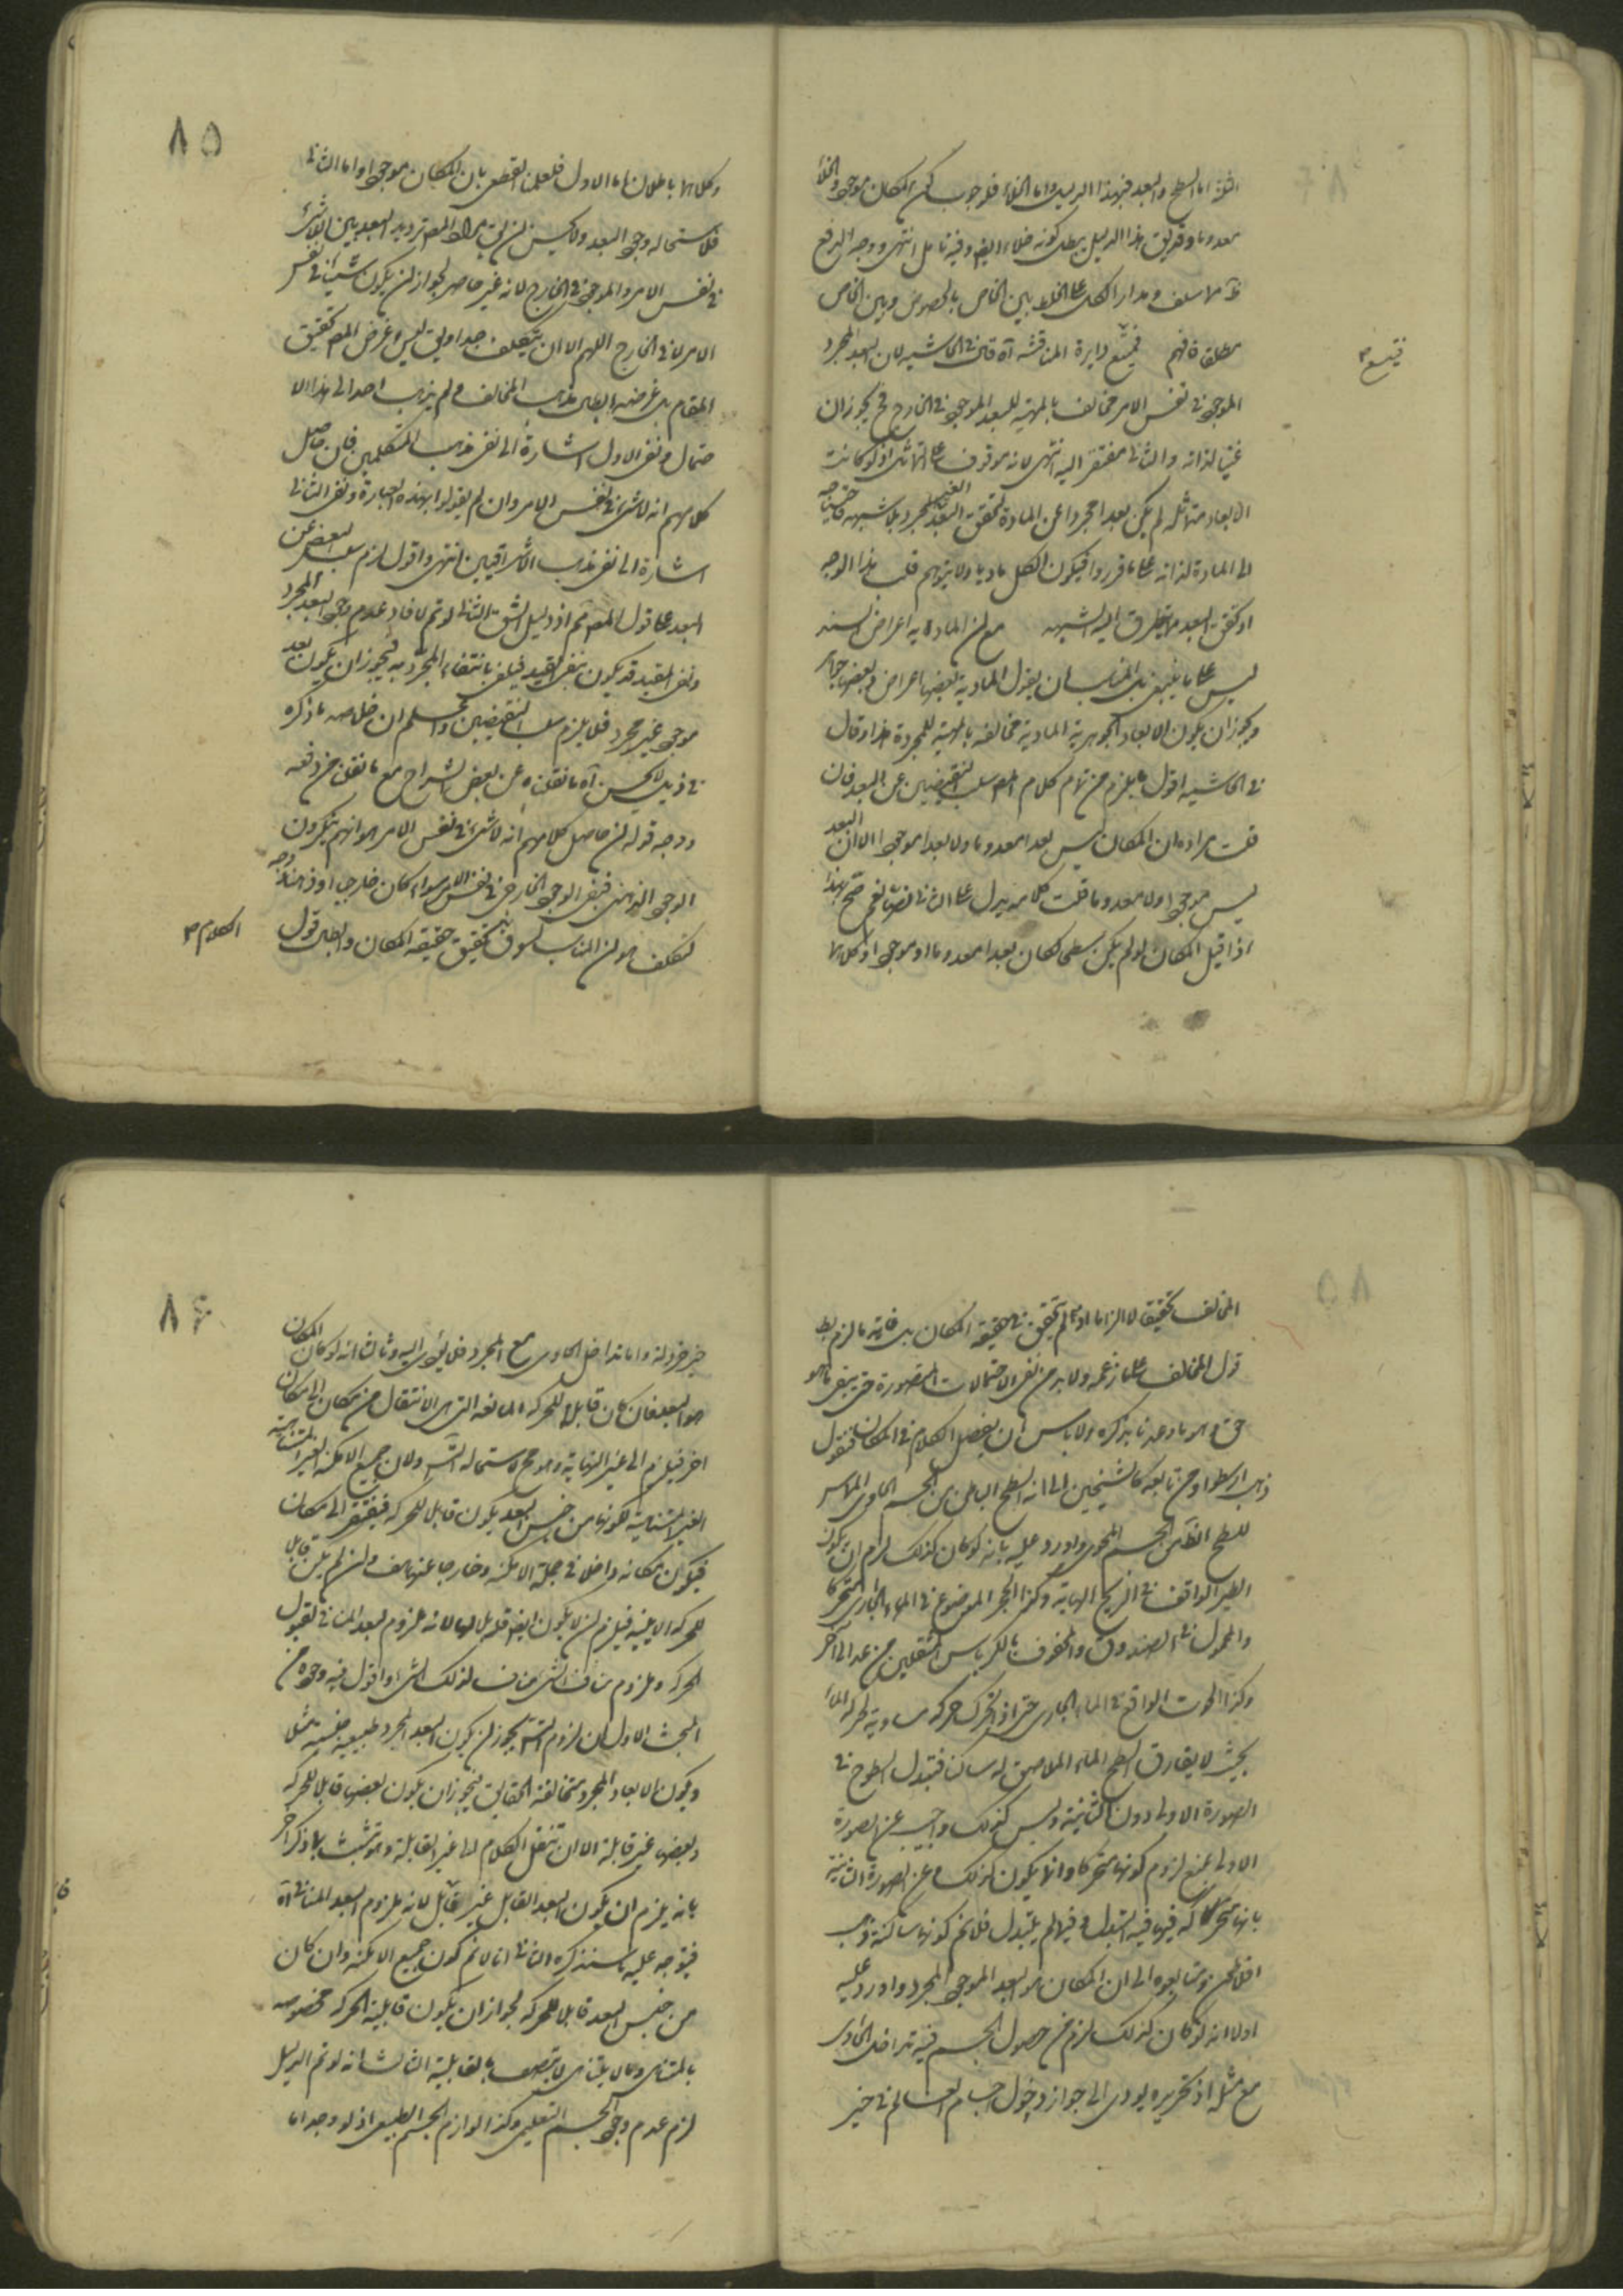 الثلثة اما السطح والبعد فبهذا الدليل واما الخلاء فلوجوب كون المكان موجودا والخلاء
معدوما وقد يق هذا الدليل يبطل كونه خلاء ايضا وفيه تامل انتهى ووجه الدفع
ظ مما سلف ومدار الكل على الخلط بين الخاص بالخصوص وبين الخاص
مطلقا فافهم فيتسع دايرة المناقشه آه قال في الحاشيه لان البعد المجرد
الموجود في نفس الامر مخالف بالمهية للبعد الموجود في الخارج فح يجوز ان
غنيا لذاته والثاني مفتقر اليه انتهى لانه موقوف على التماثل اذ لو كانت
الابعاد متماثله لم يكن بعدا مجردا عن المادة لتحقق البعد الغير المجرد بلا شبهه فاحتياجه
الى المادة لذاته على ما قرروا فيكون الكل ماديا ولا يتوهم قلب هذا الوجه
اذ تحقق البعد مما يتطرق اليه الشبهه مع ان المادية اعراض لسنه
ليس على ما ينبغي بل المناسب ان يقول المادية بعضها اعراض وبعضها جواهر
ويجوز ان يكون الابعاد الجوهرية المادية مخالفه بالمهية للمجردة هذا وقال
في الحاشيه اقول يلزم من تمام كلام المص سلب النقيضين عن البعد فان
قلت مراده ان المكان ليس بعدا معدوما ولا بعدا موجودا لا ان البعد
ليس موجودا ولا معدوما قلت كلامه يدل على الثاني ايضا نعم صح هذا
اذا قيل المكان لو لم يكن سطحا لكان بعدا معدوما او موجودا وكلاهما
فيتسع ٣
٨٥
وكلاهما باطلان اما الاول فلعلمنا القطعي بان المكان موجود واما الثاني
فلاستحاله وجود البعد ولا يحسن ان يق مراد المص ترديد البعد بين اللاشئ
في نفس الامر والموجود في الخارج لانه غير حاصر لجواز ان يكون شيئا في نفس
الامر لا في الخارج اللهم الا ان يتكلف جدا ويق ليس غرض المص تحقيق
المقام بل غرضه ابطال مذهب المخالف ولم يذهب احد الى هذا الا
حتمال ونفى الاول اشارة الى نفى مذهب المتكلمين فان حاصل
كلامهم انه لا شئ في نفس الامر وان لم يقولوا بهذه العبارة ونفى الثاني
اشارة الى نفى مذهب الاشراقيين انتهى واقول لزم سلب البعض عن
البعد على قول المص مم اذ دليل الشق الثاني لو تم لافاد عدم وجود البعد المجرد
ونفى المقيد قد يكون بنفى القيد فيكفي بانتفاء المجردية فيجوز ان يكون بعد
موجود غير مجرد فلا يلزم سلب النقيضين واعلم ان خلاصه ما ذكره
في ذيل لا يحسن آه ما نقلناه عن بعض الشراح مع ما نقلنا من دفعه
ووجه قوله ان حاصل كلامهم انه لا شئ في نفس الامر هو انهم ينكرون
الوجود الذهني فنفى الوجود الخارجي نفى الامر سواء كان خارجيا او ذهنيا ووجه
التكلف هو ان المناسب لسوق تحقيق حقيقة المكان وابطال قول
الكلام ٣
٨٥
المخالف تحقيقا لا الزاما اذ لم يتحقق حقيقة المكان بل غايته ما لزم بطـ
قول المخالف على زعمه ولا بد من نفى الاحتمالات المتصورة حتى يبقى ما هو
حق وهو ما وعدنا بذكره ولا باس ان نفصل الكلام في المكان فنقول
ذهب ارسطو ومن تابعه كالشيخين الى انه السطح الباطن من الجسم الحاوى المماس
للسطح الظاهر من الجسم المحوى واورد عليه بانه لو كان كذلك لزم ان يكون
الطير الواقف في الريح الهابة وكذا الحجر الموضوع في الماء الجارى متحركا
والمحمول في الصندوق والمحفوف بالكرباس المنتقلين من بلد الى آخر
وكذا الحوت الواقع في الماء الجارى حتى اذا تحرك حركه مساوية لحركه الماء
بحيث لا يفارق سطح الماء الملاصق له ساكن فتبدل السطوح في
الصورة الاولى دون الثانية وليس كذلك واجيب عن الصورة
الاولى بمنع لزوم كونها متحركا وانما يكون كذلك وعن الصورة الثانية
بانها متحركا فيها فيه التبدل وفيما لم يتبدل فلا نم كونها ساكنة وذهب
افلاطون ومتابعوه الى ان المكان هو البعد الموجود المجرد واورد عليه
اولا انه لو كان كذلك لزم من حصول الجسم فيه تداخل الحاوى
مع مثله اذ تجويزه يودى الى جواز دخول اجسام العالم في حيز
٨٦
حيز خردلة واما تداخل الحاوى مع المجرد فلا يؤدى اليه وثالثا انه لو كان المكان
هو البعد فان كان قابلا للحركه المانعه التي هي الانتقال من مكان الى مكان
اخر فيلزم الى غير النهاية وهو مح لاستحاله التس ولان جميع الامكنه الغير المتناهية
الغير المتناهية لكونها من جنس البعد يكون قابلا للحركه فيفتقر الى مكان
فيكون مكانه داخلا في جملة الامكنه وخارجا عنها هف وان لم يكن قابلا
للحركه الاينيه فيلزم ان لا يكون ايضا قابلا لها لانه ملزوم للبعد المنافي لقبول
الحركه وملزوم منافي الشئ مناف لذلك الشئ واقول فيه وجوه من
البحث الاول ان لزوم التس يجوز ان يكون البعد المجرد طبيعيه جنسيه مثلا
ويكون الابعاد المجرد متخالفة الحقايق فيجوز ان يكون بعضها قابلا للحركه
وبعضها غير قابلة الا ان تنقل الكلام الى غير القابلة ويتشبث بما ذكر آخرا
بانه يلزم ان يكون البعد القابل غير قابل لانه ملزوم البعد المنافي آه
فيتوجه عليه ما سنذكره الثاني انا لا نم كون جميع الامكنه وان كان
من جنس البعد قابلا للحركه لجواز ان يكون قابلية الحركه مخصوصه
بالمتناهي وما لا يتناهى لا يتصف بالقابلية الثالث انه لو تم الدليل
لزم عدم وجود الجسم التعليمي وكذا لوازم الجسم الطبيعي اذ لو وجد اما